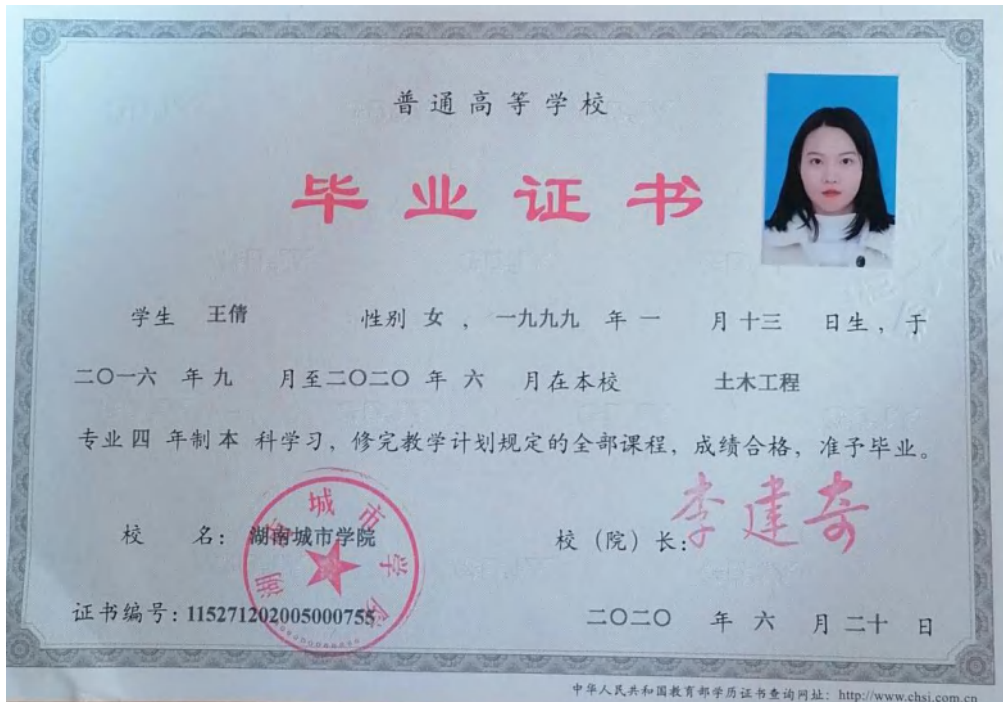 普通高等学校
毕业证书
学生 王倩 性别 女 , 一九九九 年 一 月 十三 日生，于
二〇一六 年 九 月至二〇二〇 年 六 月在本校 土木工程
专业 四 年制 本 科学习，修完教学计划规定的全部课程，成绩合格，准予毕业。
校 名：湖南城市学院
校（院）长：李建奇
湖南城市学院
证书编号：115271202005000755
二〇二〇 年 六 月 二十 日
中华人民共和国教育部学历证书查询网址：http://www.chsi.com.cn